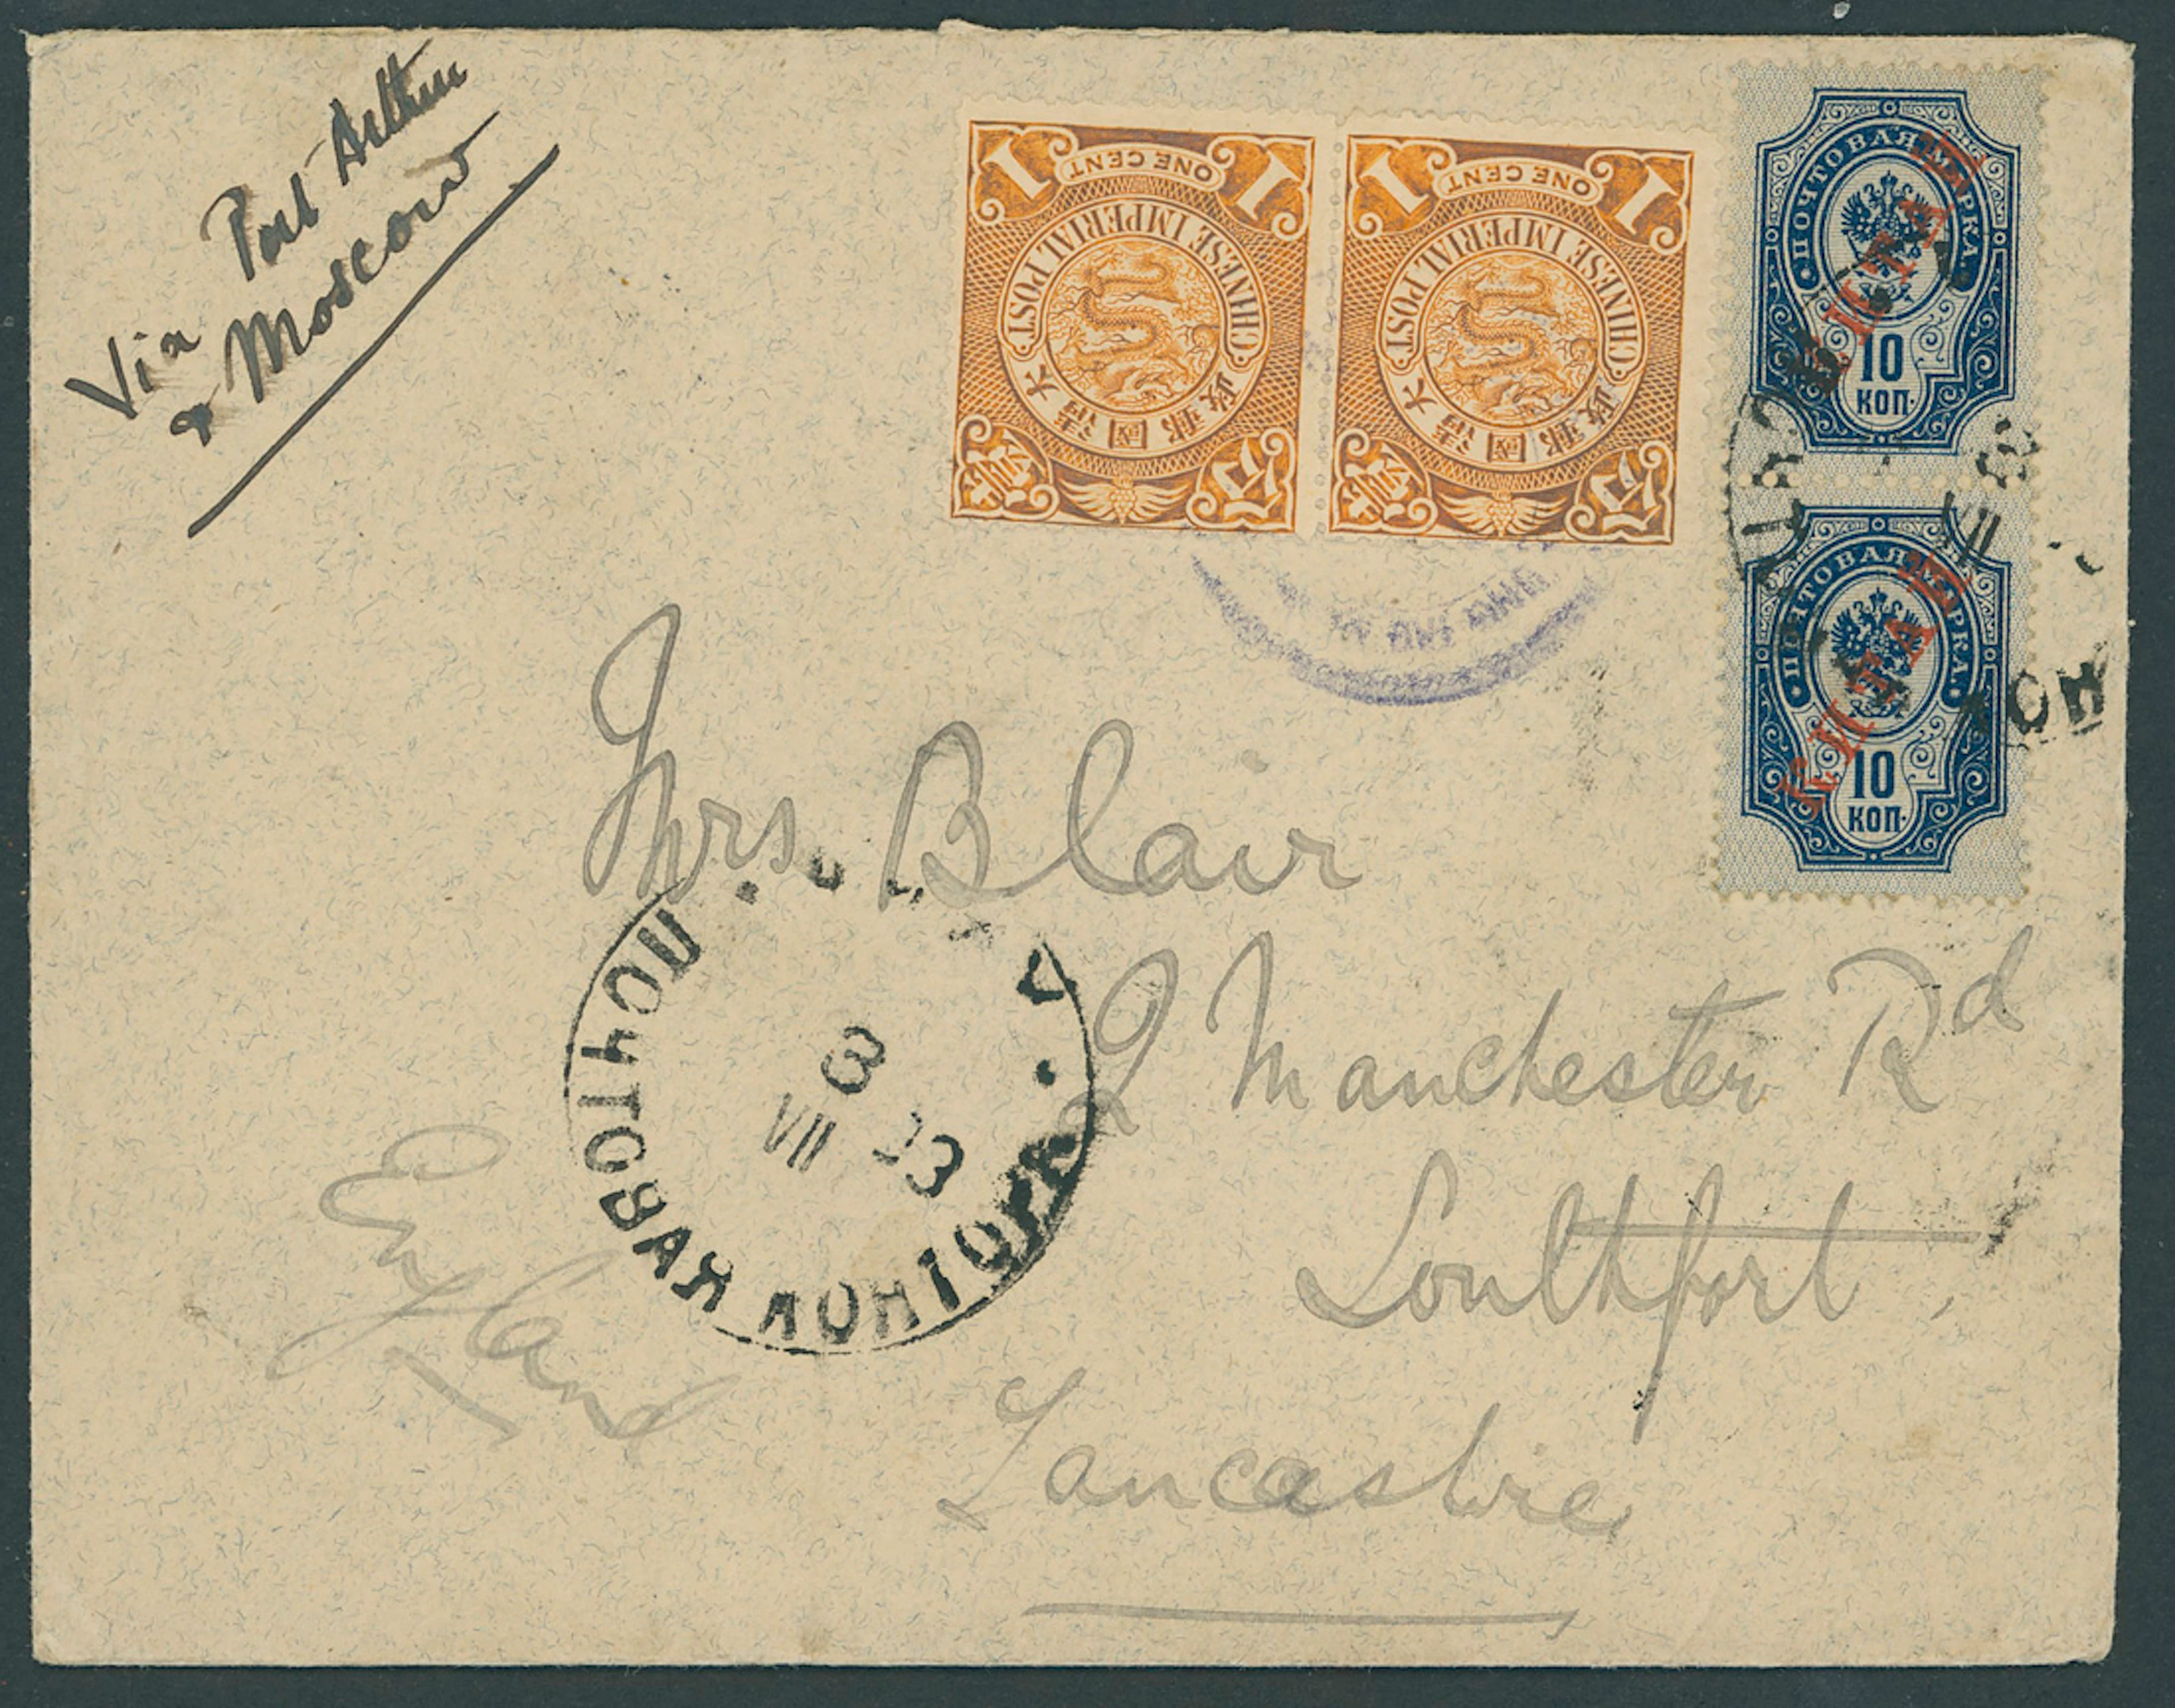 Via Port Arthur
& Moscow
1 ONE CENT 1
CHINESE IMPERIAL POST
大清國郵政
1 ONE CENT 1
CHINESE IMPERIAL POST
大清國郵政
ПОЧТОВАЯ МАРКА
КИТАЙ
10
КОП.
ПОЧТОВАЯ МАРКА
КИТАЙ
10
КОП.
VII
КОН
Mrs. Blair
2 Manchester Rd
Southport
Lancashire
England
ПОЧТОВАЯ КОНТОРА
3
VII